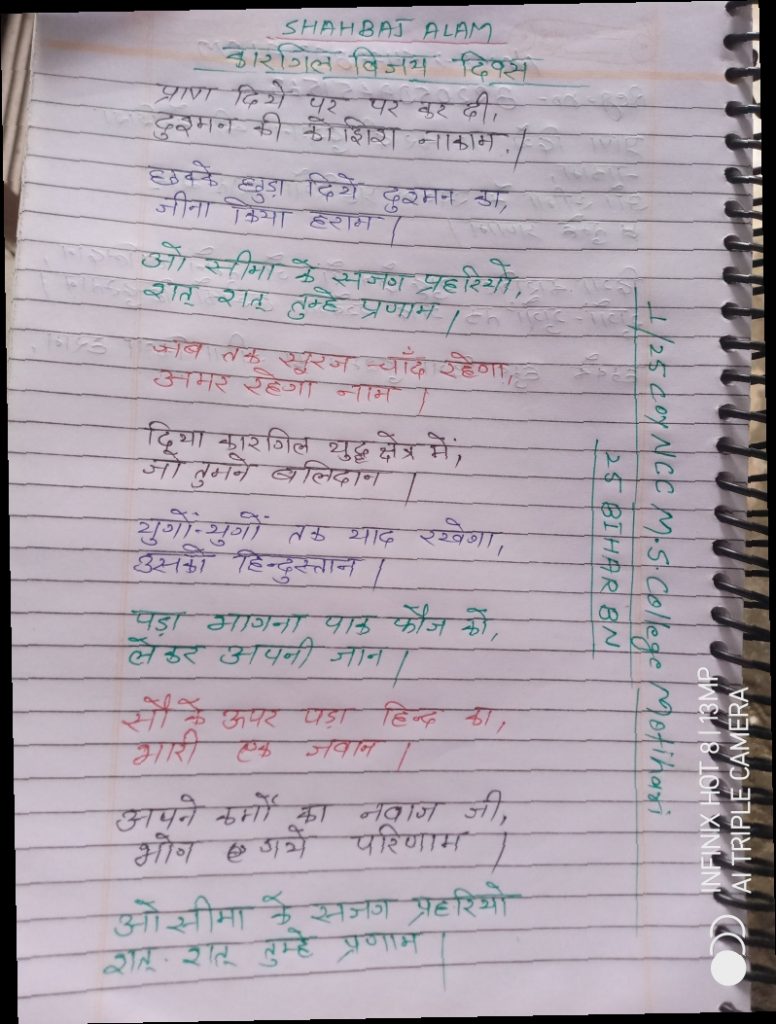 SHAHBAJ ALAM
कारगिल विजय दिवस
प्राण दिये पर पर कर दी,
दुश्मन की कोशिश नाकाम.|
छक्के छुड़ा दिये दुश्मन का,
जीना किया हराम |
ओ सीमा के सजग प्रहरियो,
शत् शत् तुम्हे प्रणाम |
जब तक सूरज चाँद रहेगा,
अमर रहेगा नाम |
दिया कारगिल युद्ध क्षेत्र में,
जो तुमने बलिदान |
युगों-युगों तक याद रखेगा,
उसको हिन्दुस्तान |
पड़ा भागना पाक फौज को,
लेकर अपनी जान |
सौ के ऊपर पड़ा हिन्द का,
भारी एक जवान |
अपने कर्मों का नवाज जी,
भोग गये परिणाम |
ओ सीमा के सजग प्रहरियो
शत्. शत् तुम्हे प्रणाम |
1/25 Coy NCC M.S College Motihari
25 BIHAR BN
INFINIX HOT 8 | 13MP
AI TRIPLE CAMERA